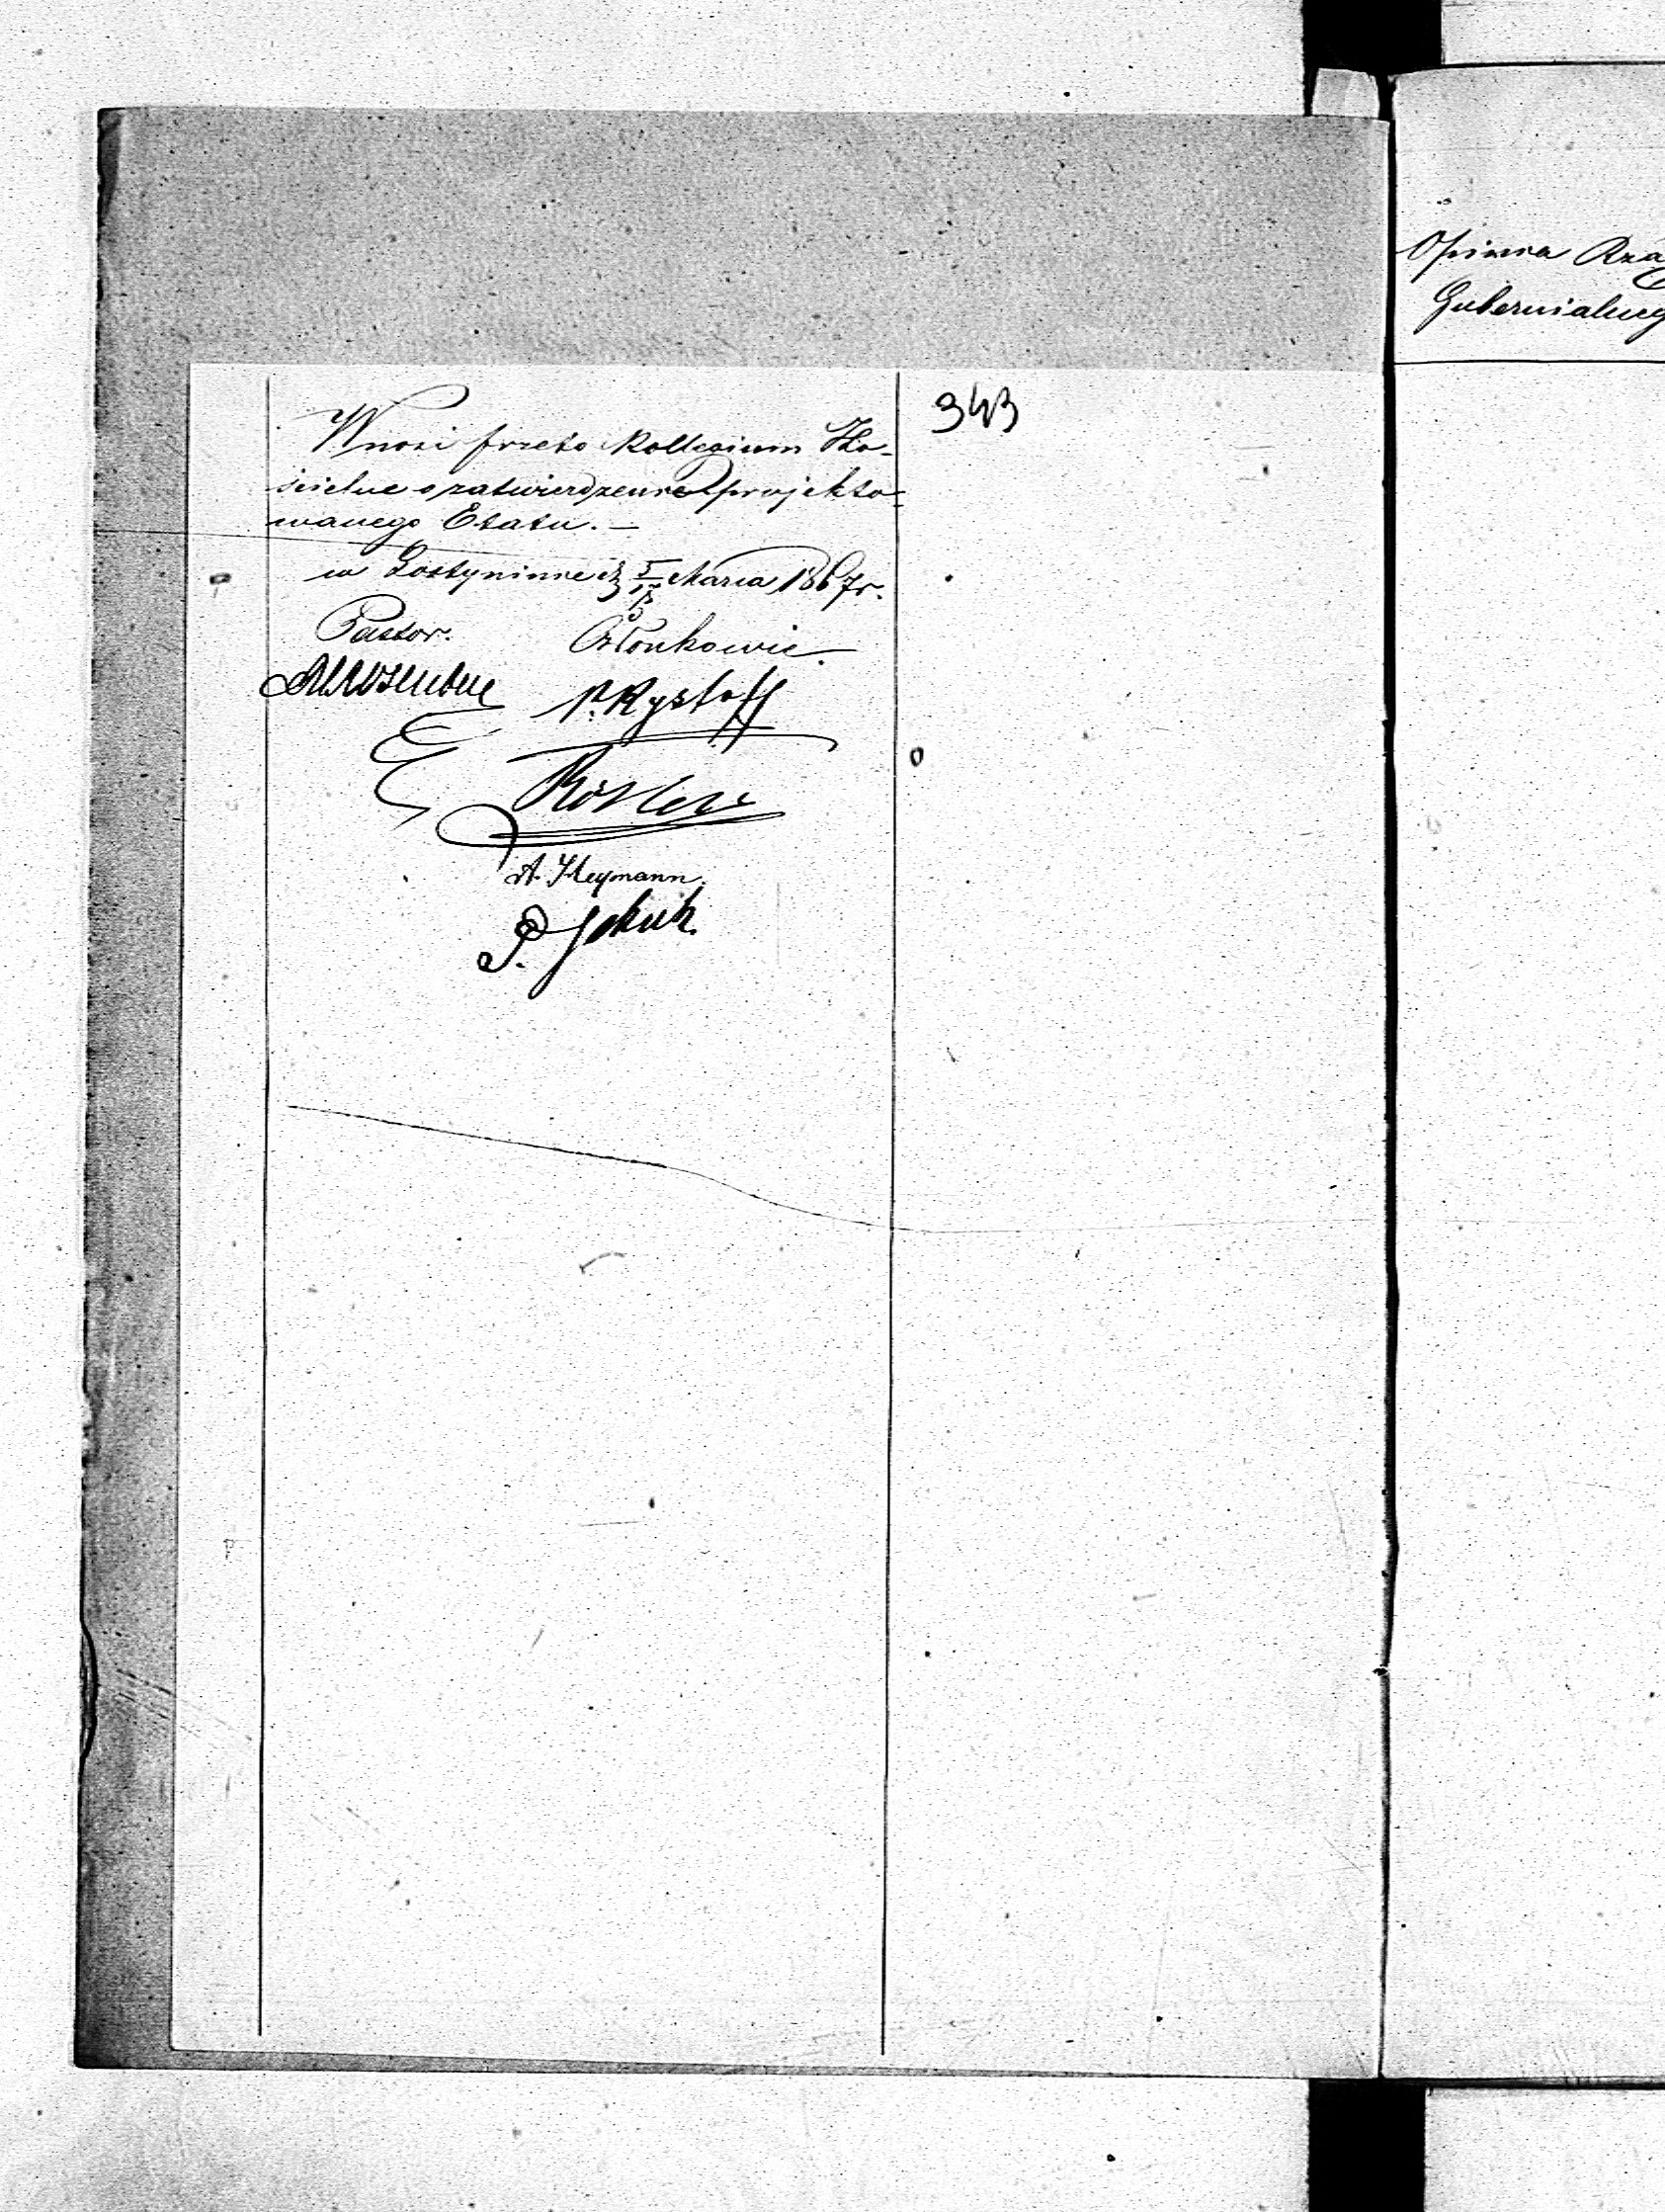 343
Wnosi przeto Kollegium Ko-
ścielne o zatwierdzenie projekto-
wanego Etatu. —
w Gostyninie d. 5/17 Marca 1867 r.
Pastor. Członkowie
P. Rystoff
Rösler
A. Heymann.
P. Jekuk.
Opinia Rzą
Gubernialneg